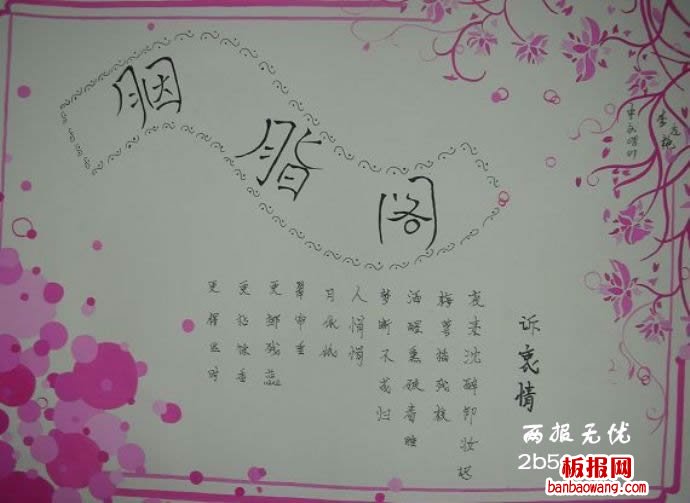 胭脂阁
诉衷情
夜来沈醉卸妆迟
梅萼插残枝
酒醒熏破春睡
梦断不成归
人悄悄
月依依
翠帘垂
更挪残蕊
更馀香
更得些时
两报无忧
2b5
板报网
banbaowang.com